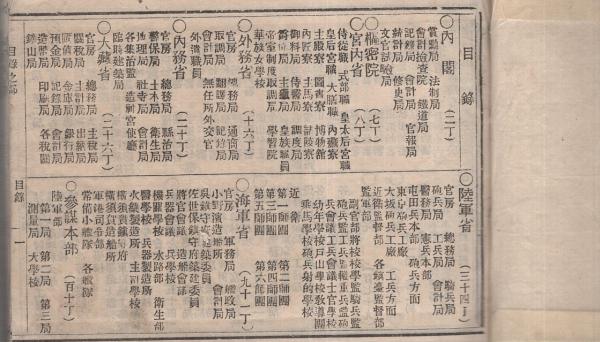 目錄
○內閣 (二丁)
賞勳局 法制局
會計檢査院 鐵道局
記錄局 會計局 官報局
統計局 修史局
文官試驗局
○樞密院 (七丁)
○宮內省 (八丁)
侍從職 式部職 皇太后宮職
皇后宮職 大膳職 內藏寮
主殿寮 圖書寮 博物館
內匠寮 主馬寮 諸陵寮
御料局 侍醫局 調度局
爵位局 主獵局 皇族職員
帝室制度取調局 學習院
華族女學校
○外務省 (十六丁)
官房 總務局 通商局
取調局 飜譯局 記錄局
會計局 無任所外交官
外國職員
○內務省 (二十丁)
官房 總務局 縣治局
警保局 土木局 衛生局
地理局 社寺局 會計局
各集治監 造神宮使廳
臨時建築局
○大藏省 (二十六丁)
官房 總務局 主稅局
關稅局 主計局 出納局
國債局 金庫局 銀行局
預金局 記錄局 會計局
造幣局 印刷局 各稅關
鑛山局
目錄之部
○陸軍省 (三十四丁)
官房 總務局 騎兵局
砲兵局 工兵局 會計局
醫務局 憲兵本部
屯田兵本部 砲兵方面
東京砲兵工廠 工兵方面
大坂砲兵工廠
近衛監督部 各鎭臺監督部
副官部將校學校監騎兵監
砲兵監工兵監
兵會議工兵會議士官學校
幼年學校戶山學校敎導團
乘馬學校砲兵射的學校
近衛
第一師團 第二師團
第三師團 第四師團
第五師團 第六師團
○海軍省 (九十一丁)
官房 軍務局 艦政局
小野濱造船所 會計局
吳鎭守府建築委員
佐世保鎭守府建築委員
將官會議 造船會議
兵器會議 兵學校
機關學校 水路部 衛生部
醫學校 兵器製造所
火藥製造所 主計學校
橫須賀鎭守府
橫須賀造船所
軍港司令部
常備小艦隊 各艦隊
○參謀本部 (百十丁)
陸軍部
第一局 第二局 第三局
測量局 大學校
目錄 一